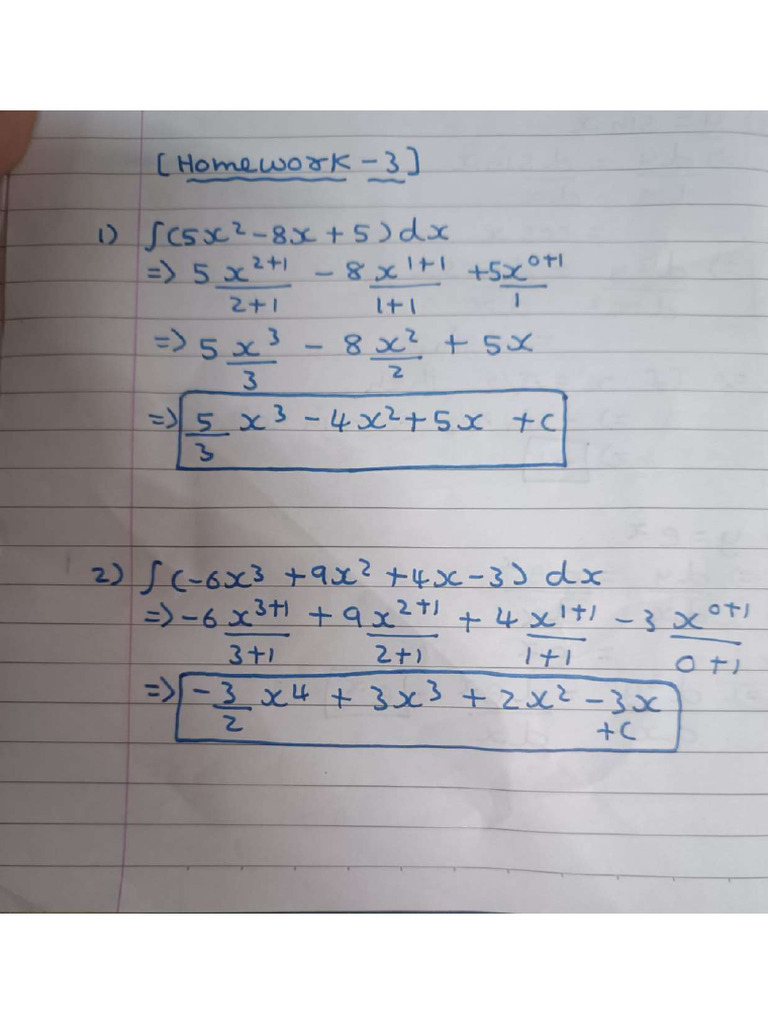 [Homework - 3]
1) ∫(5x² - 8x + 5) dx
=> 5 x^(2+1)/(2+1) - 8 x^(1+1)/(1+1) + 5x^(0+1)/1
=> 5 x³/3 - 8 x²/2 + 5x
=> 5/3 x³ - 4x² + 5x + c
2) ∫(-6x³ + 9x² + 4x - 3) dx
=> -6 x^(3+1)/(3+1) + 9 x^(2+1)/(2+1) + 4 x^(1+1)/(1+1) - 3 x^(0+1)/(0+1)
=> -3/2 x⁴ + 3x³ + 2x² - 3x
+c